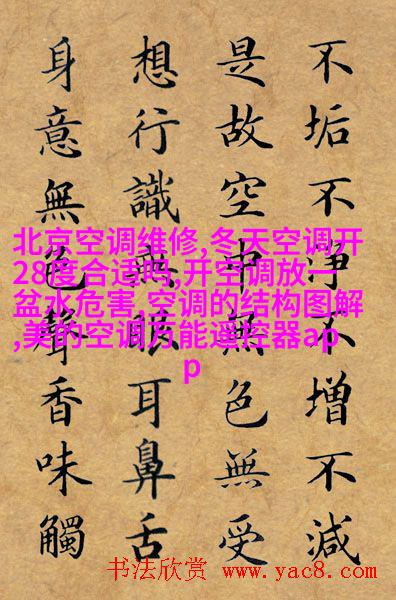 不垢不淨不增不減
是故空中無色無受
想行識無眼耳鼻舌
身意無色聲香味觸
北京空调维修,冬天空调开
28度合适吗,开空调放一
盆水危害,空调的结构图解
,美的空调万能遥控器ap
p
书法欣赏 www.yac8.com